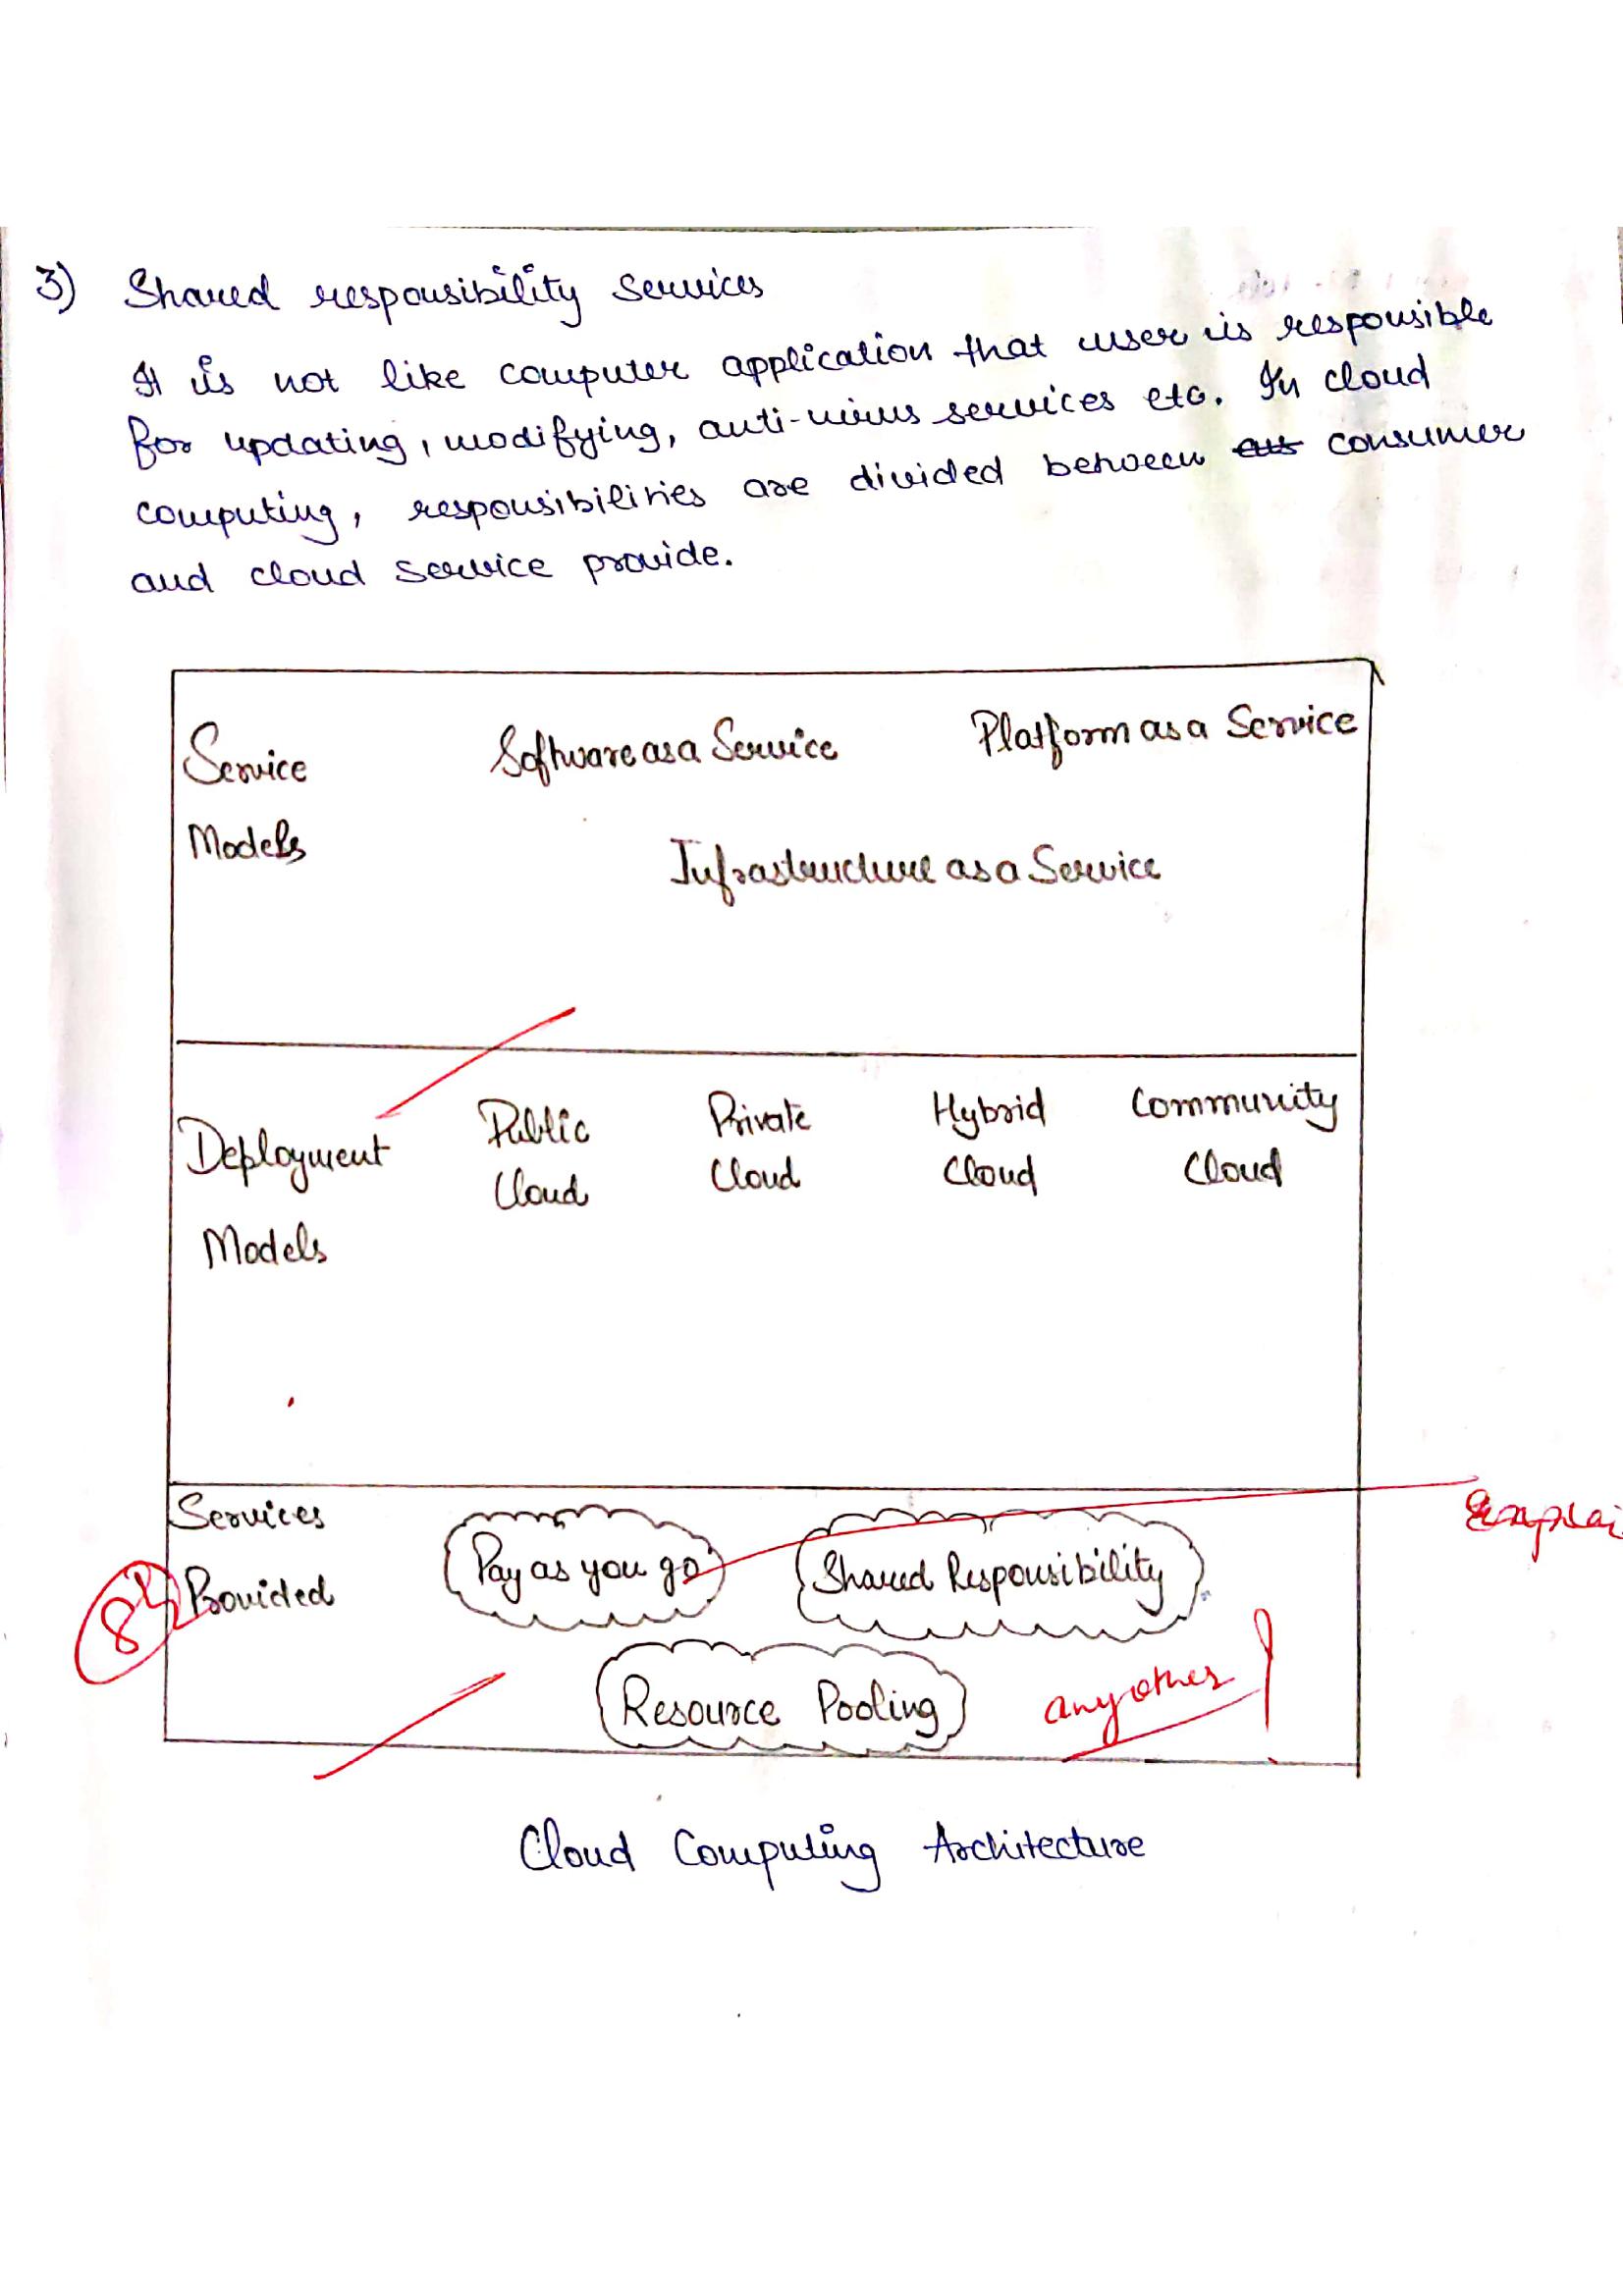 3) Shared responsibility services
It is not like computer application that user is responsible
for updating, modifying, anti-virus services etc. In cloud
computing, responsibilities are divided between consumer
and cloud service provide.
Service Models
Software as a Service
Platform as a Service
Infrastructure as a Service
Deployment Models
Public Cloud
Private Cloud
Hybrid Cloud
Community Cloud
Services Provided
Pay as you go
Shared Responsibility
Resource Pooling
any other
Explai
8½
Cloud Computing Architecture